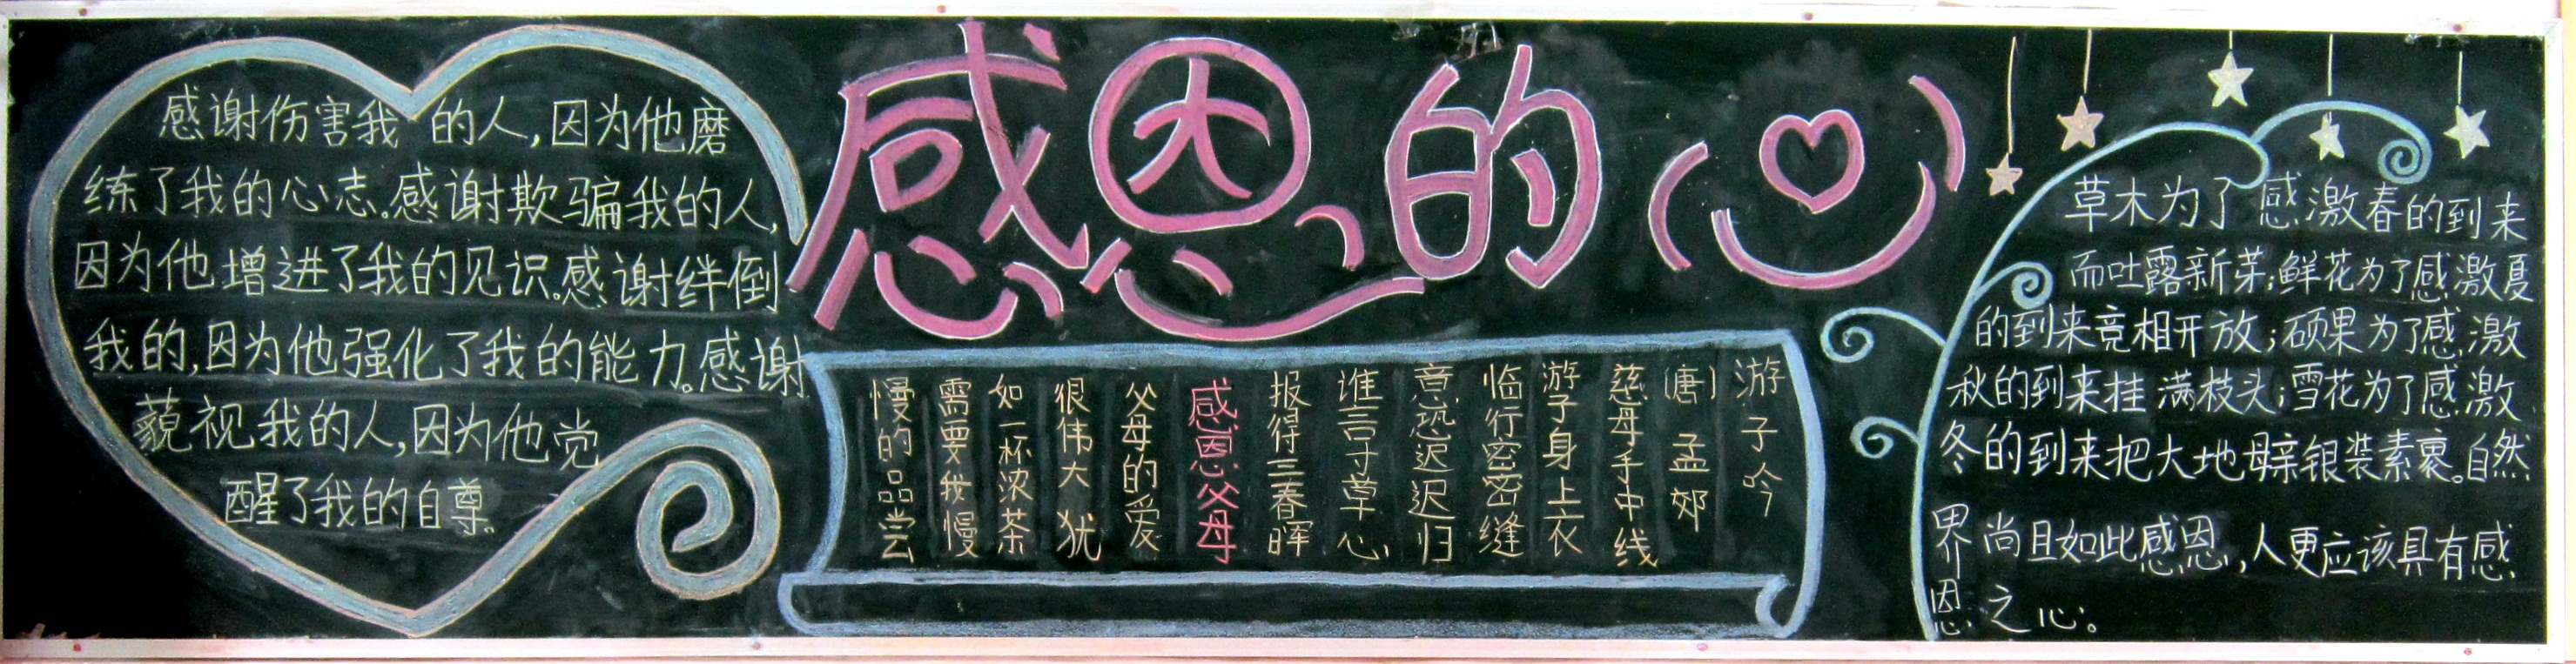 感恩的心
感谢伤害我的人,因为他磨
练了我的心志。感谢欺骗我的人,
因为他增进了我的见识。感谢绊倒
我的,因为他强化了我的能力。感谢
藐视我的人,因为他觉
醒了我的自尊。
游子吟
(唐)孟郊
慈母手中线
游子身上衣
临行密密缝
意恐迟迟归
谁言寸草心
报得三春晖
感恩父母
父母的爱
很伟大 犹
如一杯浓茶
需要我慢
慢的品尝
草木为了感激春的到来
而吐露新芽;鲜花为了感激夏
的到来竞相开放;硕果为了感激
秋的到来挂满枝头;雪花为了感激
冬的到来把大地母亲银装素裹。自然
界尚且如此感恩,人更应该具有感
恩之心。